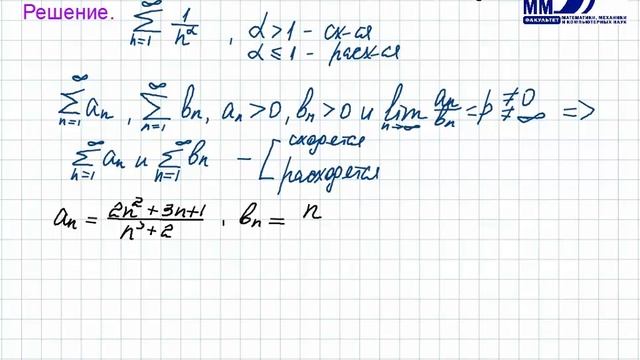 Решение.
∞ ∑ n=1 1/n^α , α > 1 - сх-ся
α ≤ 1 - расх-ся
ММ
ФАКУЛЬТЕТ МАТЕМАТИКИ, МЕХАНИКИ И КОМПЬЮТЕРНЫХ НАУК
∞ ∑ n=1 aₙ , ∞ ∑ n=1 bₙ , aₙ > 0 , bₙ > 0 и lim n→∞ aₙ/bₙ = p ≠ 0 ≠ ∞ =>
∞ ∑ n=1 aₙ и ∞ ∑ n=1 bₙ - [ сходятся
расходятся
aₙ = (2n² + 3n + 1)/(n³ + 2) , bₙ = n